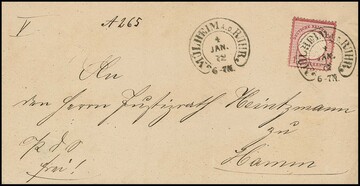 V
A265
MÜLHEIM a.d. RUHR.
4
JAN.
72
6-7N.
MÜLHEIM a.d. RUHR.
4
JAN.
72
6-7N.
An
den Herrn Justizrath Heintzmann
zu
Hamm
frei!